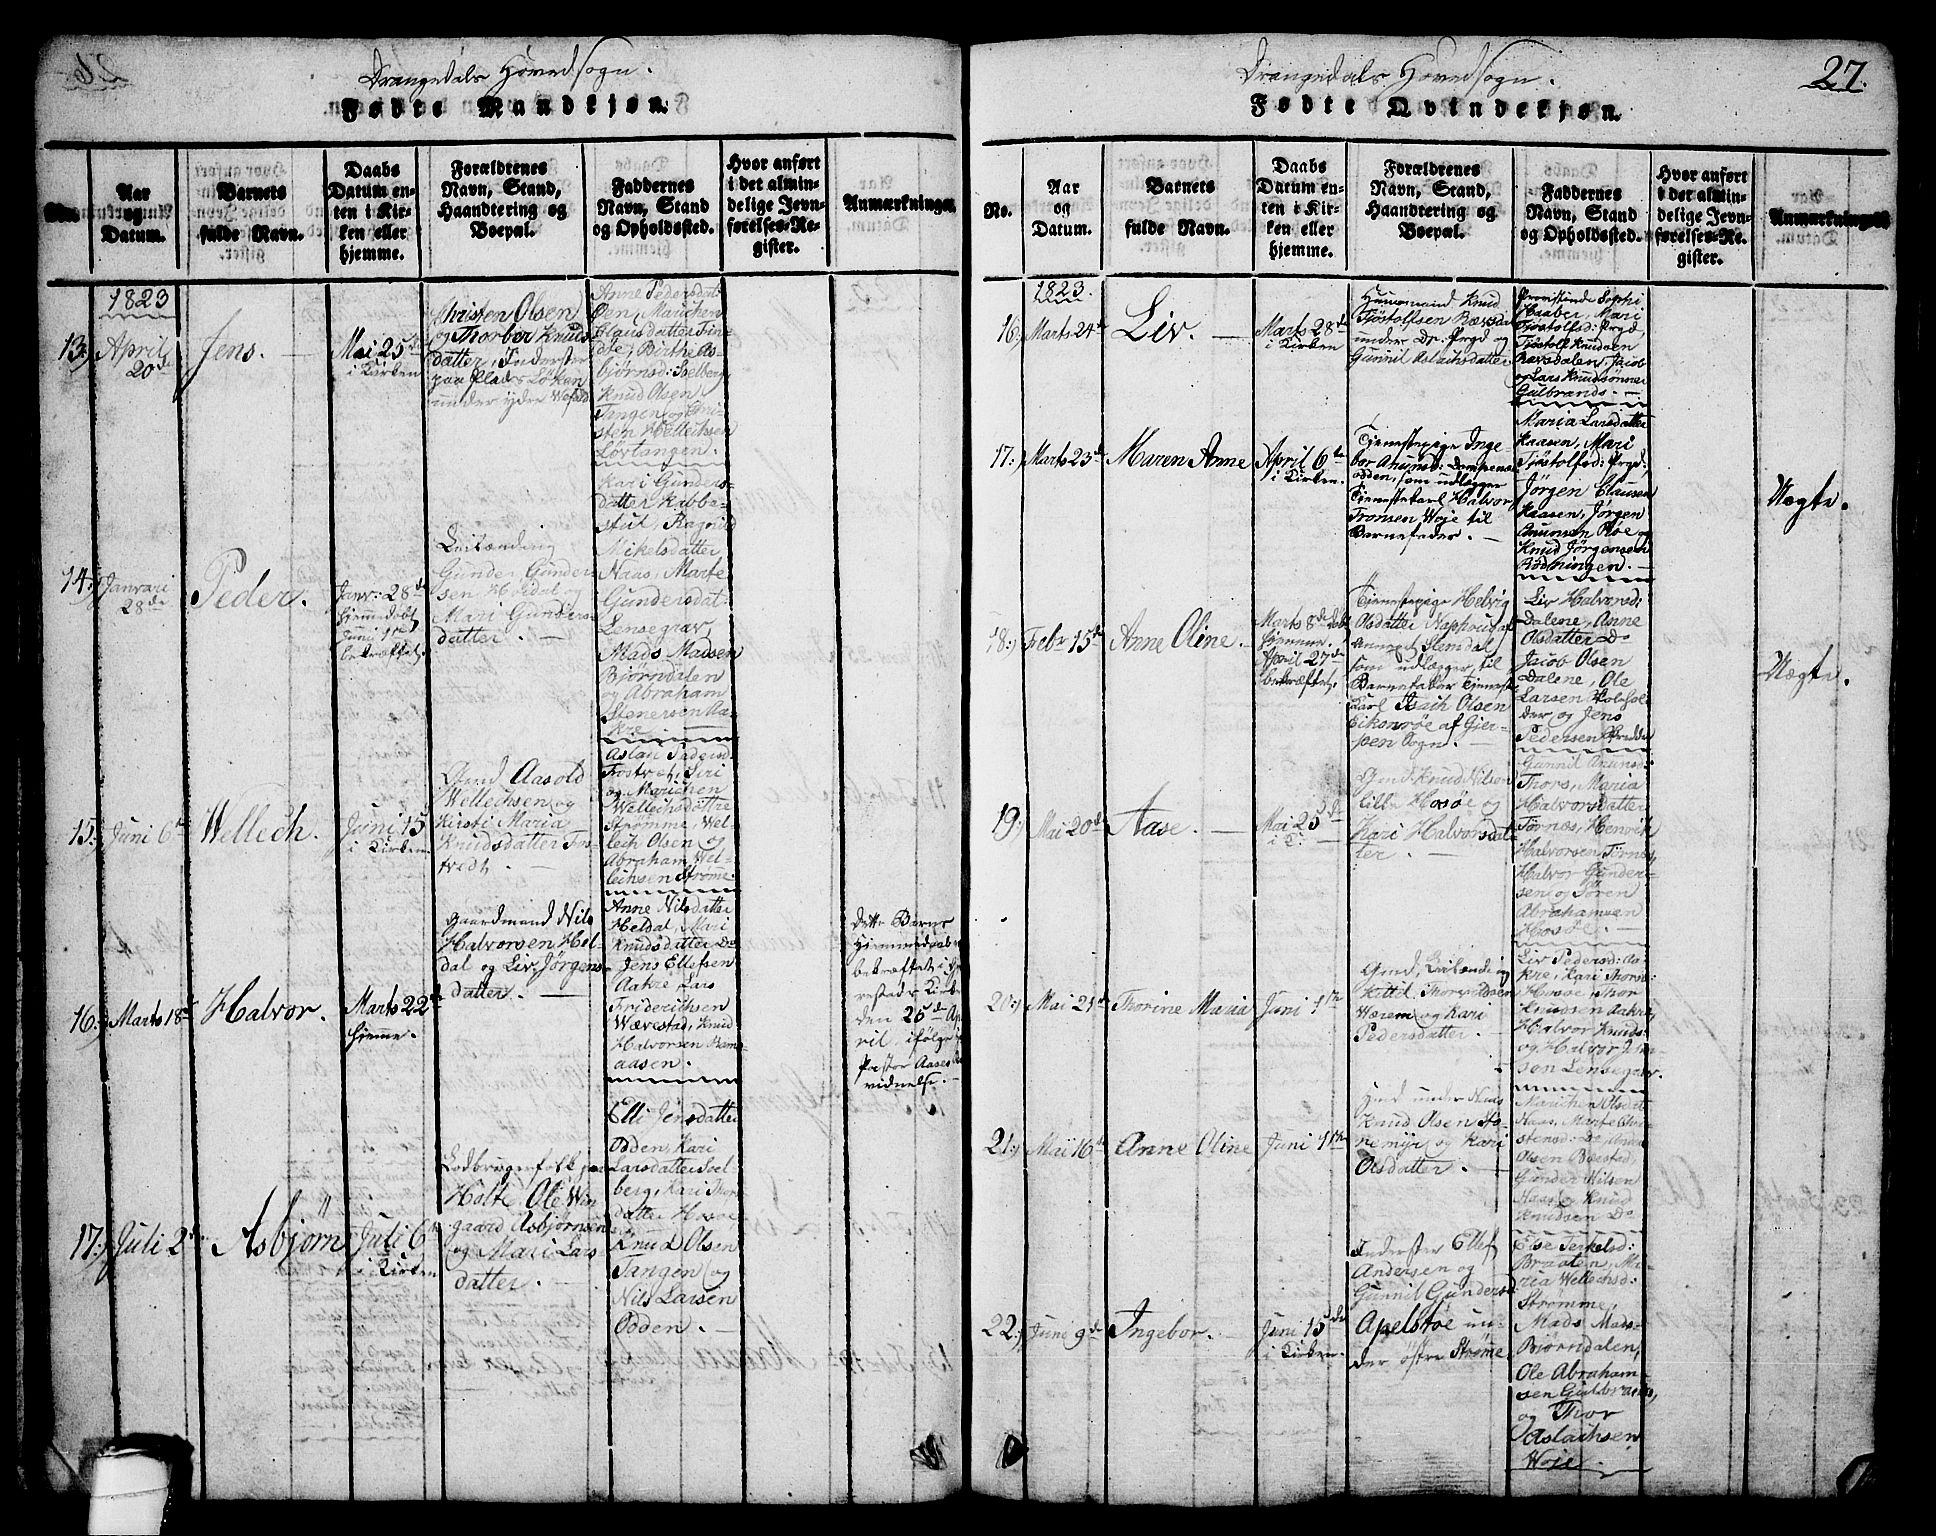 Drangedals Hovedsogn.
Fødte Mandkjøn.
No.
Aar
og
Datum.
Barnets
fulde Navn.
Daabs
Datum en-
ten i Kir-
ken eller
hjemme.
Forældrenes
Navn, Stand,
Haandtering og
Boepæl.
Faddernes
Navn, Stand
og Opholdssted.
Hvor anført
i det almin-
delige Jevn-
førelses-Re-
gister.
Anmærkninger
1823
13.)
April
20de
Jens. —
Mai 25de
i Kirken
Christen Olsen
og Thorber Knuds
datter, Inderster
paa Plads Løken
under ydre Wefald
Anne Pedersdat:
Øen, Marichen
Clausdatter Tin-
de, Birthe As-
bjørnsd: Soelberg
Knud Olsen
Tangen og Chri-
sten Hellechsen
Lørtangen.
14.)
Januari
28de
Peder.
Janr: 28de
hjemmedøbt
Juni 1te
bekræftet.
Leilænding
Gunder Gunder-
sen Høidal og
Mari Gunders-
datter. —
Kari Gunders-
datter Kabbe-
stul, Ragnild
Mikelsdatter
Naas, Marte
Gundersdat-
Lensegrav,
Mads Madsen
Bjørndalen
og Abraham
Stenersen Aa-
kre.
15.)
Juni 6te
Wellech.
Juni 15
i Kirken
Gmd Aasold
Wellechsen og
Kirsti Maria
Knudsdatter Fos-
tvedt. —
Aslau Peders.
Fostvet, Siri
og Marichen
Wellechsdattre
Strømme, Wel-
lech Olsen og
Abraham Wel-
lechsen Strøme.
16.)
Marts 18de
Halvor.
Marts 22de
hjemme.
Gaardmand Nils
Halvorsen Hel-
dal og Liv Jørgens-
datter. —
Anne Nilsdatter
Heldal, Mari
Knudsdatter Do
Jens Ellefsen
Aakre Lars
Friderichsen
Wærestad, Knud
Halvorsen Rams-
aasen.
Dette Barns
Hjemmedaab er
bekræftet i
restads Kir
den 26de Ap
ril ifølge
Pastor Aases
vidnelse. —
17.)
Juli 2de
Asbjørn
Juli 6te
i Kirken
Lodbrugerfolk paa
Holte Ole Win
gaard Asbjørnsen
og Mari Lars
datter. —
Elli Jensdatter
Odden, Kari
Larsdatter Soel
berg, Kari Thors
datter Hosøe
Knud Olsen
Tangen og
Nils Larsen
Odden. —
Drangedals Hovedsogn.
27.
Fødte Qvindekjøn.
No.
Aar
og
Datum.
Barnets
fulde Navn.
Daabs
Datum en-
ten i Kir-
ken eller
hjemme.
Forældrenes
Navn, Stand,
Haandtering og
Boepæl.
Faddernes
Navn, Stand
og Opholdssted.
Hvor anført
i det almin-
delige Jevn-
førelses-Re-
gister.
Anmærkninger
1823.
16.)
Marts 24de
Liv. —
Marts 28de
i Kirken
Huusmand Knud
Tjøstolfsen Rørsdal
under Dr. Prgd og
Gunnil Aslachsdatter
Provstinde Sophi
Haaber, Mari
Tjøstolfsd: Prgd
Tjøstolf Knudsen
Rørsdalen, Jacob
og Lars Knudsønner
Gulbrands. —
17.)
Marts 23de
Maren Anne
April 6te
i Kirken.
Tjenestepige Inge-
bor Anunsd:
odden, som udlægger
Tjenestekarl Halvor
Tronsen Woje til
Barnefader. —
Maria Larsdatter
Kaasen, Mari
Tjøstolfsd: Prgd,
Jørgen Claussen
Kaasen, Jørgen
Anunsen Røe og
Knud Jørgensen
Rødningen. —
Uægte.
18.)
Febr 15de
Anne Oline.
Marts 8de døbt
hjemme,
April 27de
bekræftet.
Tjenestepige Helvig
Olsdatter Naphoug af
Annexet Slemdal
som udlægger til
Barnefader Tjeneste
Karl Isach Olsen
Eikonrøe af Gjer-
pen Sogn. —
Liv Halvorsd:
Dalene, Anne
Olsdatter Do
Jacob Olsen
Dalene, Ole
Larsen
og Jens
Pedersen
Uægte.
19.)
Mai 20de
Aase. —
Mai 25de
i K. —
Gmd Knud Nilsen
lille Hosøe og
Kari Halvorsdat-
ter. —
Gunnil Anunsd:
Thors, Maria
Halvorsdatter
Tørnæs, Henrik
Halvorsen Tørnes,
Halvor Gunder-
sen og Søren
Abrahamsen
Hosøe. —
20.)
Mai 21de
Thorine Maria
Juni 1te
Gmd, Leilænding
Kittil Thorsvaldsen
Wærem og Kari
Pedersdatter.
Liv Pedersd: Aa-
kre, Kari Thors-
Hosøe, Thor
Knudsen Aakre,
Halvor Knuds-
og Halvor Jen-
sen Lensegrav.
21.)
Maii 16de
Anne Oline
Juni 1te
Hmd under Naas
Knud Olsen Sto-
nemyr og Kari
Olsdatter. —
Marichen Olsdat
Naas, Marte Chri-
stensd: Do,
Olsen Børstad,
Gunder Nilsen
Naas og Knud
Knudsen Do
22.)
Juni 9de
Ingebor. —
Juni 15de
i Kirken.
Inderster Ellef
Andersen og
Gunnil Gundersd
Apelstøe un-
der østre Strøme
Else Terkelsd:
Braaten, Ma-
ria Wellechsd:
Strømme,
Mads Mads-
Bjørndalen,
Ole Abraham-
sen Gulbrands,
og Thor
Aslachsen
Woje. —